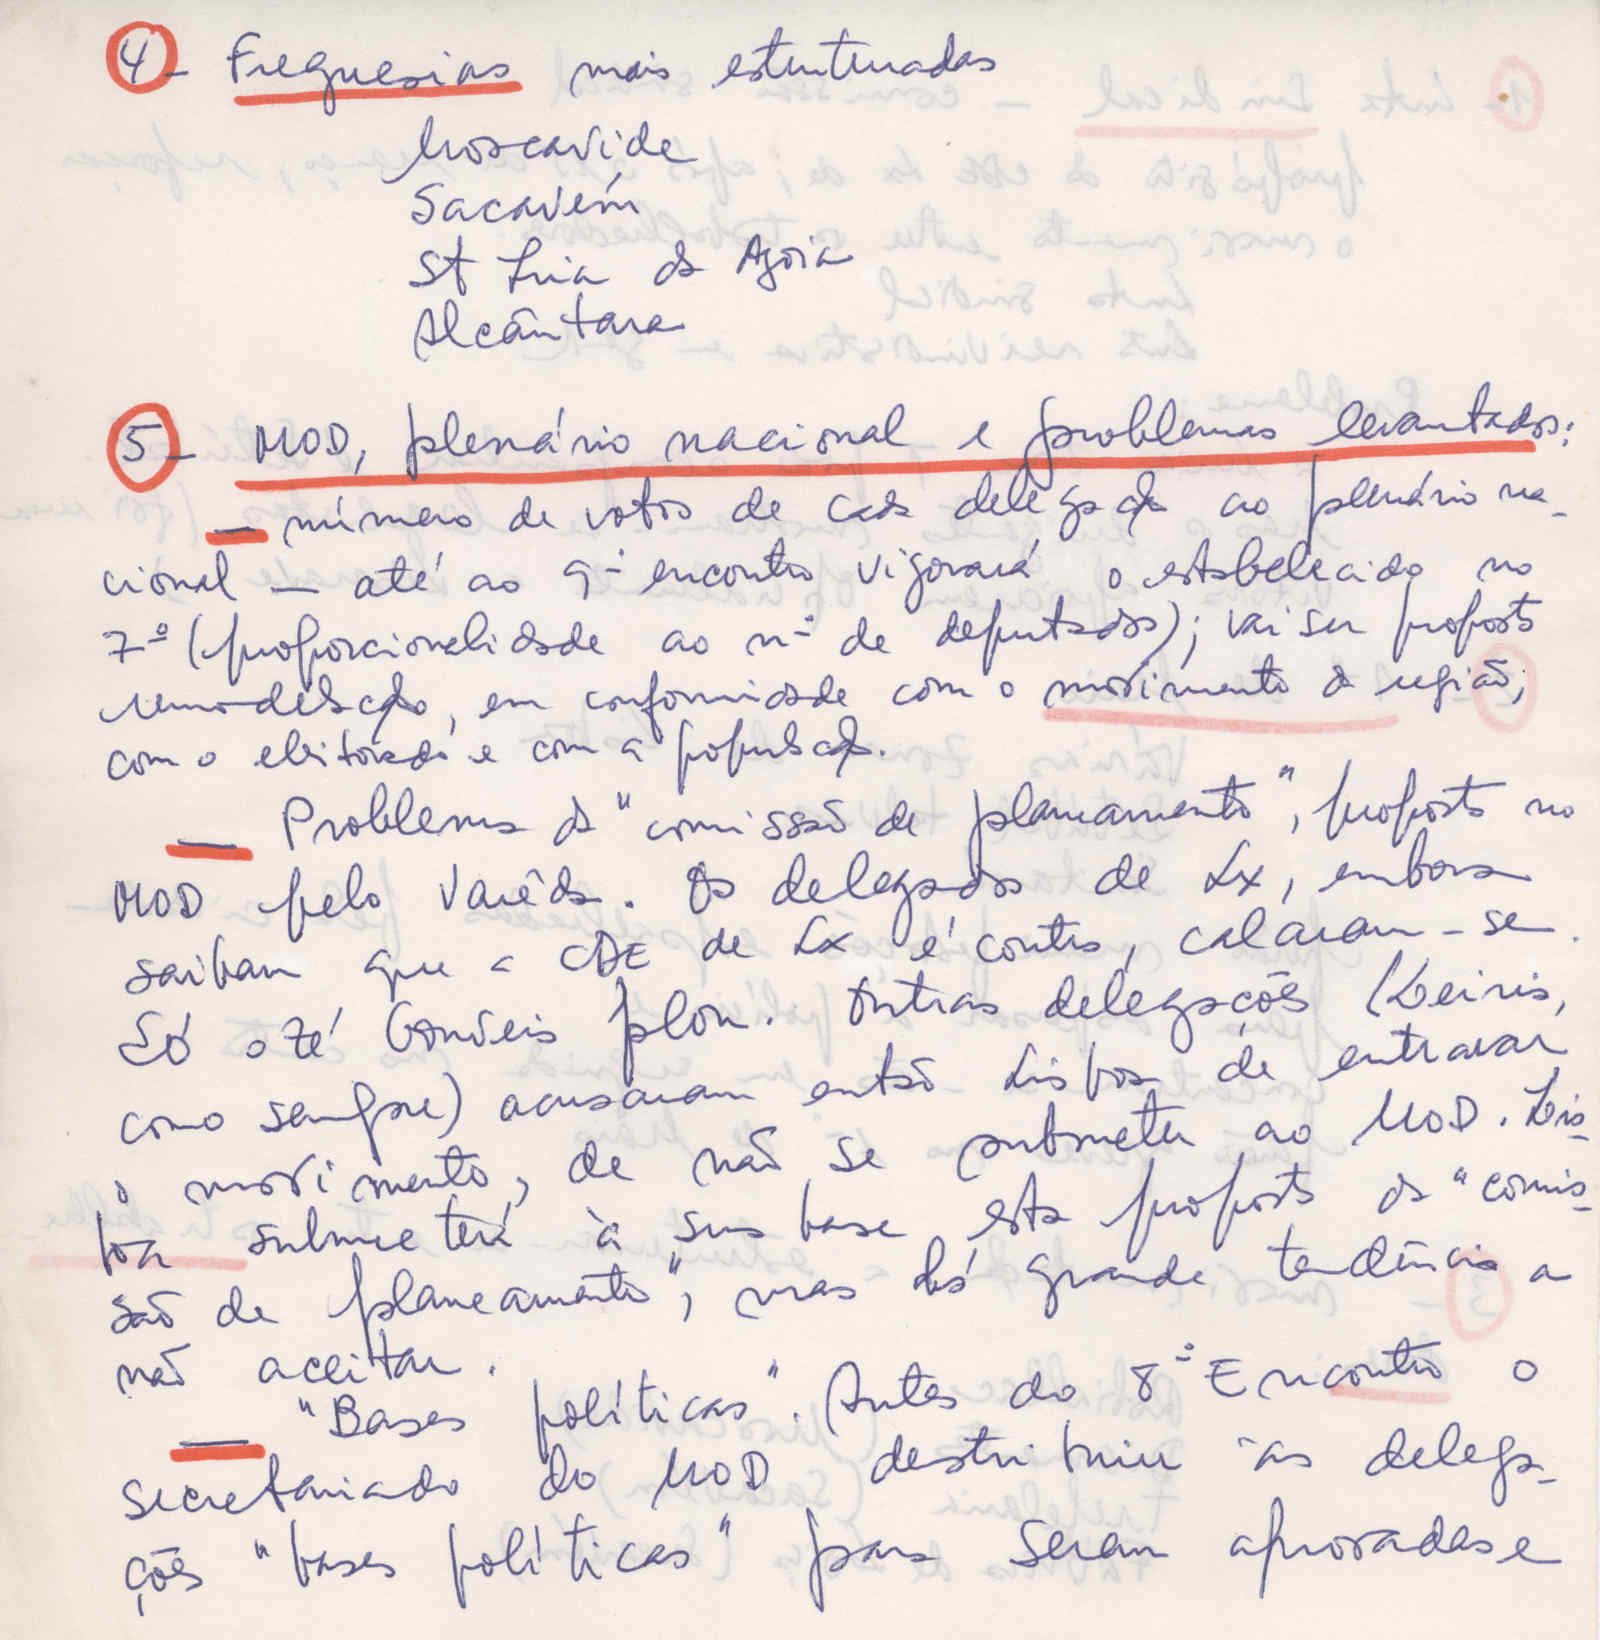 4 - Freguesias mais estruturadas
Moscavide
Sacavém
Stª Iria da Azoia
Alcântara
5 - MOD, plenário nacional e problemas levantados:
— número de votos de cada delegação ao plenário na-
cional — até ao 9º encontro vigorará o estabelecido no
7º (proporcionalidade ao nº de deputados); vai ser proposta
remodelação, em conformidade com o movimento da região;
com o eleitorado e com a população.
— Problema da "comissão de planeamento", proposta no
MOD pelo Varêda. Os delegados de Lx, embora
saibam que a CDE de Lx é contra, calaram-se.
Só o Zé Gouveia falou. Outras delegações (Leiria,
como sempre) acusaram então Lisboa de entravar
o movimento, de não se submeter ao MOD. Lis-
boa submeterá à sua base esta proposta da "comis-
são de planeamento", mas há grande tendência a
não aceitar.
— "Bases políticas". Antes do 8º Encontro o
secretariado do MOD destribuiu às delega-
ções "bases políticas" para serem aprovadas e